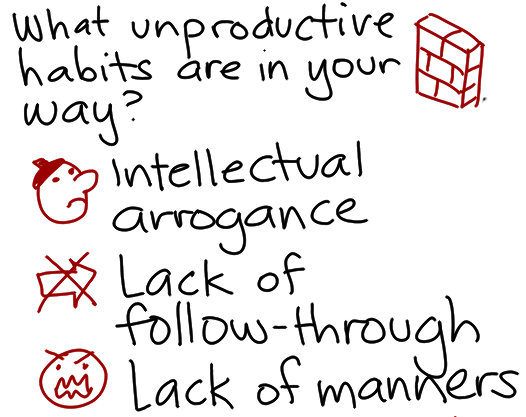 What unproductive
habits are in your
way?
Intellectual
arrogance
Lack of
follow-through
Lack of manners